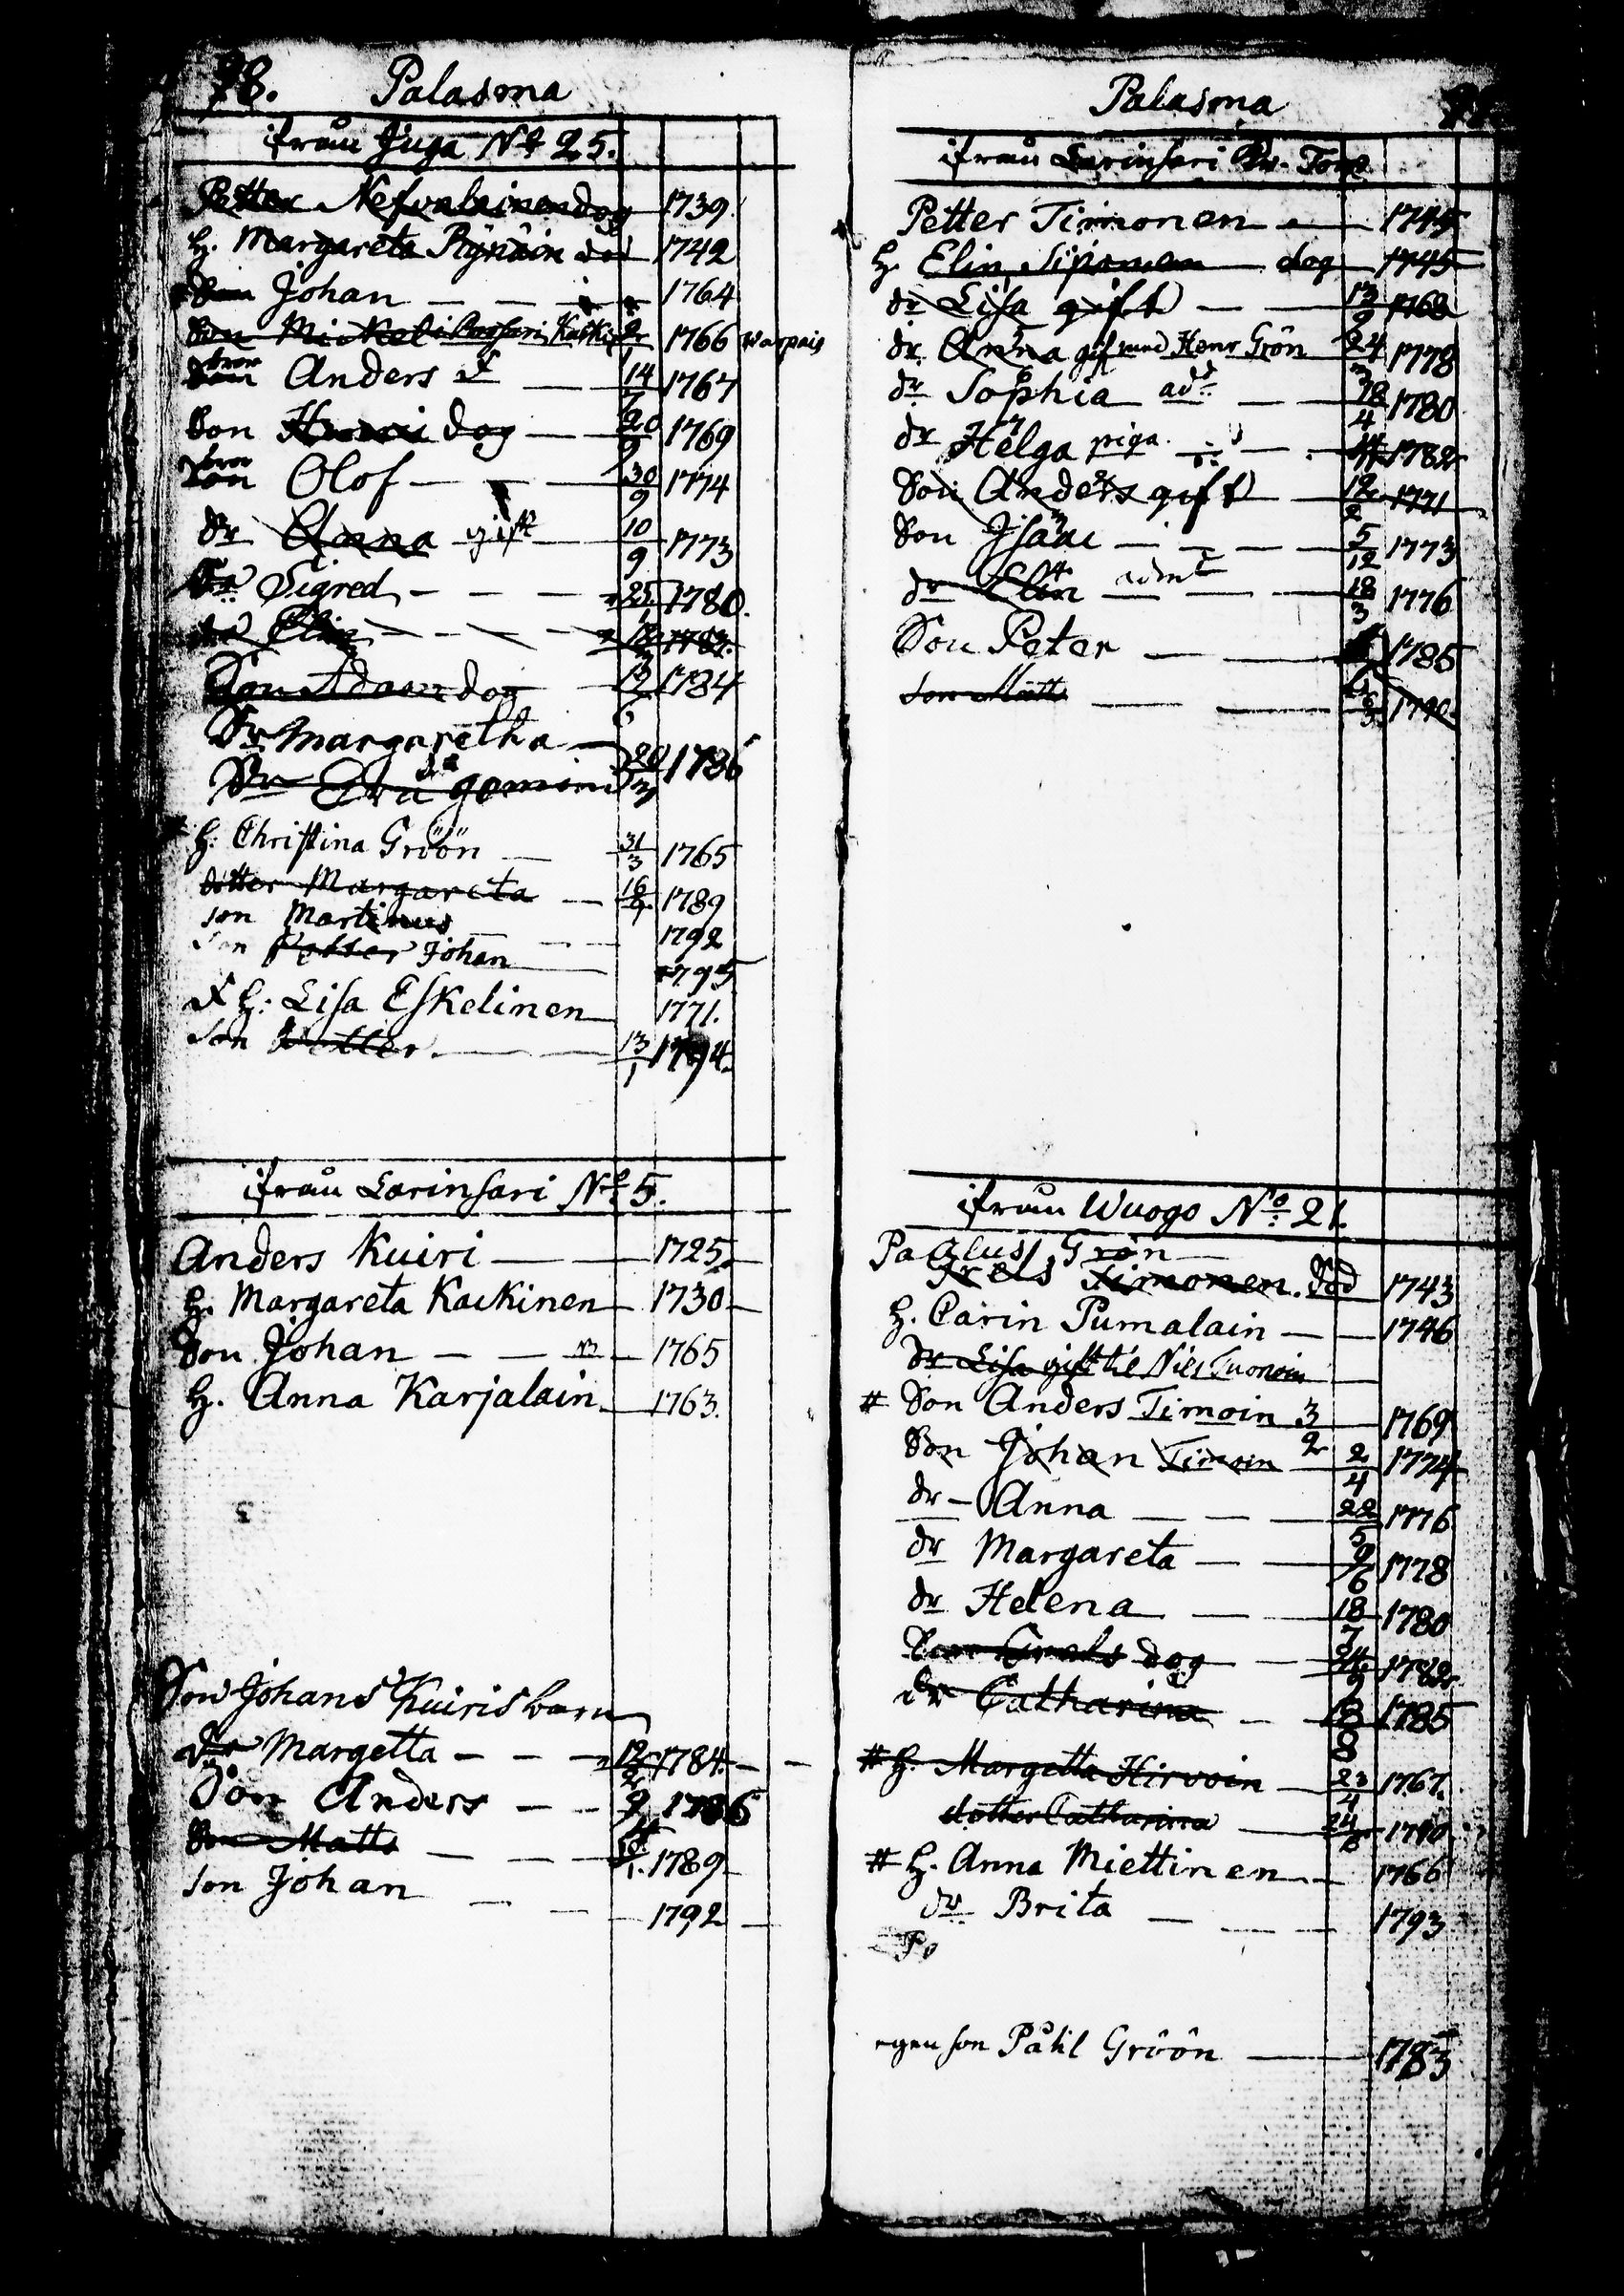 98. Palasma
ifrån Juga No 25.
Petter Nefvalainen dog 1739.
H. Margareta Rÿnäin dod 1742
Son Johan — — 1764
Son Mickel i 1766 warpais
bror Anders 14/7 1767
Son Henric dog — 20/9 1769
bror Olof — — 30/9 1774
dr Anna gift 10/9 1773
Dr Sigred — — — 25 1780.
dr Elin — — — 1783.
Son Adam dog 13/ 1784
Dr Margaretha —
Dr Eva gemini 20/3 1786
H: Christina Gröön — 31/3 1765
dotter Margareta — 16/9 1789
son Martinus — — 1792
Son Petter Johan — 1795
H: Lisa Eskelinen 1771.
Son Petter — — 13/1 1794.
ifrån Larinsari No 5.
Anders Kuiri — — 1725
H. Margareta Kackinen — 1730
Son Johan — — — 1765
H. Anna Karjalain 1763.
Son Johans Kuiris barn
dr Margetta — — — 12/2 1784 — —
Son Anders — — 9/ 1786
Son Matts — — /1. 1789
son Johan — — — 1792
Palasma
ifrån Larinsari
Petter Timonen — 1745
H. Elin Sipponen — dog 1745
dr Lisa gift — — 13/9 1768
dr Anna gift med Henr Grön 24/3 1778
dr Sophia — 18/4 1780
dr Helga piga. — 1782
Son Anders gift 12/2 1771
Son Isaac — — — 5/12 1773
dr Elin — — 18/3 1776
Son Peter — — 1785
son Matts — — 1790.
ifrån Wuogo No 21.
Paulus Grön
Timonen. Död 1743
H. Carin Pumalain — — 1746
dr Lisa gift til Nils Tuonoin
# Son Anders Timoin 3 — 1769
Son Johan Timoin 2 2/4 1774
dr — Anna — — — 22/5 1776
dr Margareta — — 9/6 1778
dr Helena — — 18/7 1780
Son dog — 24/9 1782
dr Catharina — 13/8 1785
# H. Margetta Hirvoin — 23/4 1767.
dotter Catharina — 24/ 1790
# H. Anna Miettinen — 1766
dr Brita — — 1793
Po
egen son Påhl Gröön — 1783